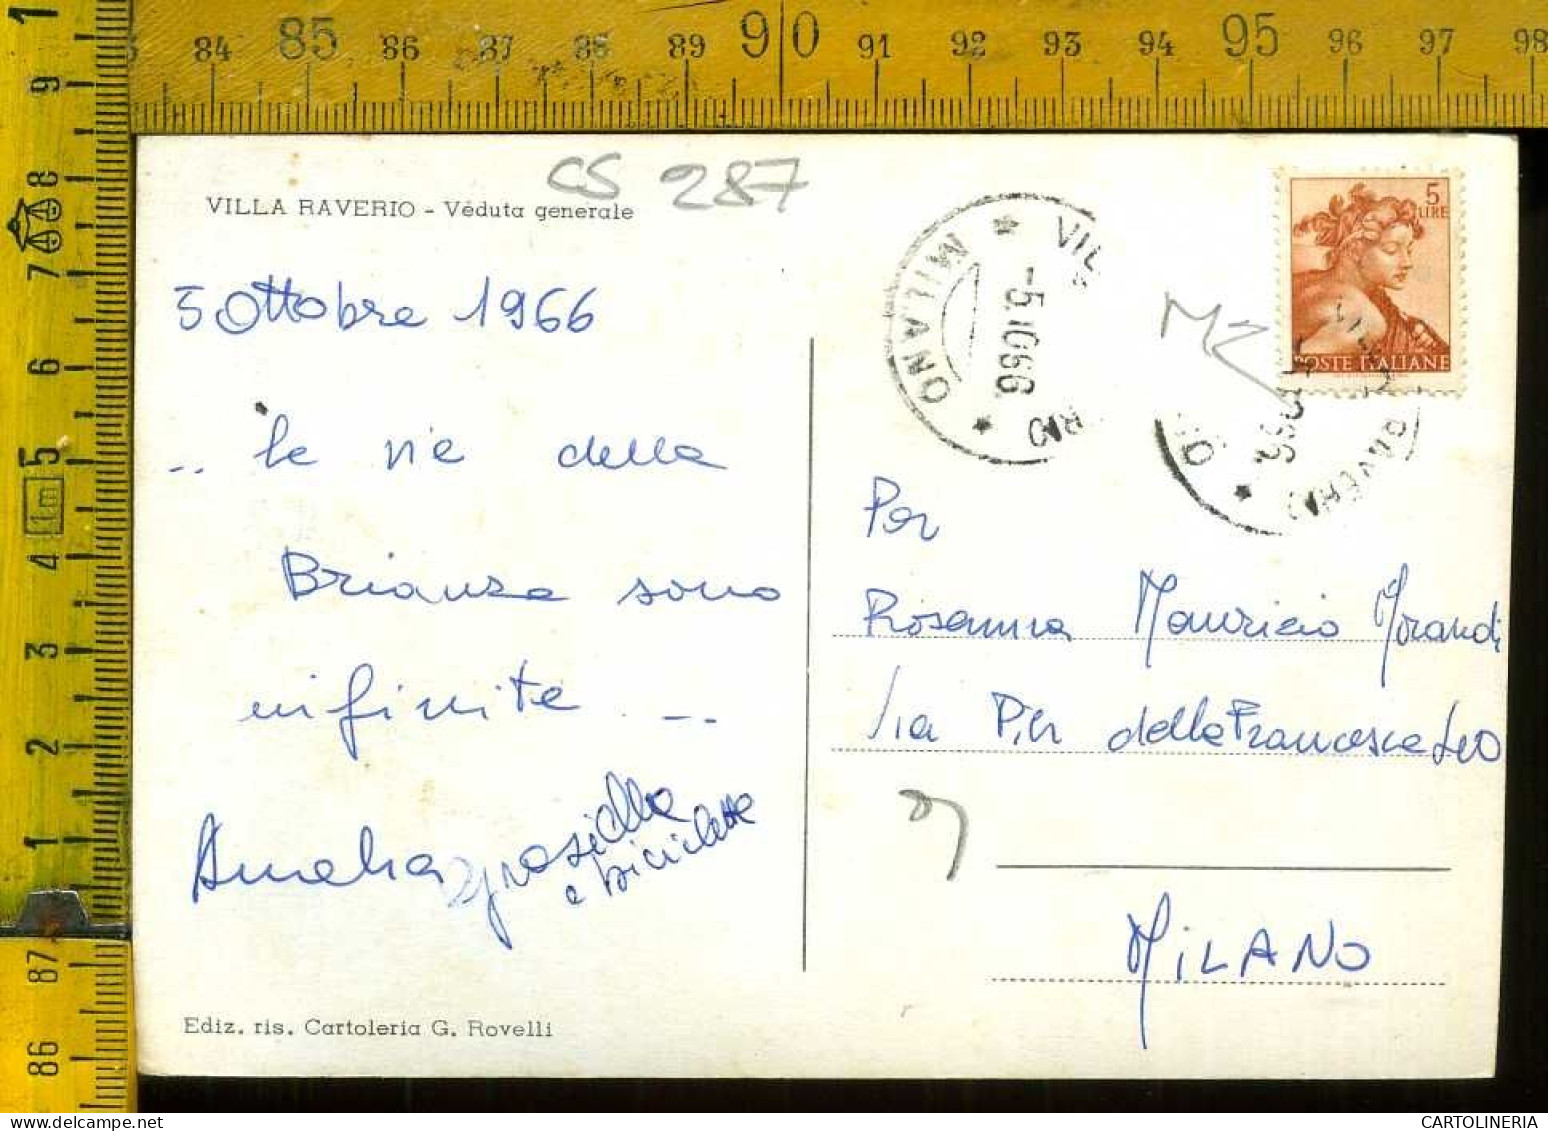 83 84 85 86 87 88 89 90 91 92 93 94 95 96 97 98
1 9 8 7 6 5 4 3 2 1 87 86
1m
CS 287
VILLA RAVERIO - Veduta generale
5 LIRE
POSTE ITALIANE
MILANO
-5.10.66
5 Ottobre 1966
.. le vie della
Brianza sono
infinite . --
Amelia Graziella
e biciclette
MZ
Per
Rosanna Maurizio Morandi
Via Pier della Francesca
MILANO
Ediz. ris. Cartoleria G. Rovelli
CARTOLINERIA